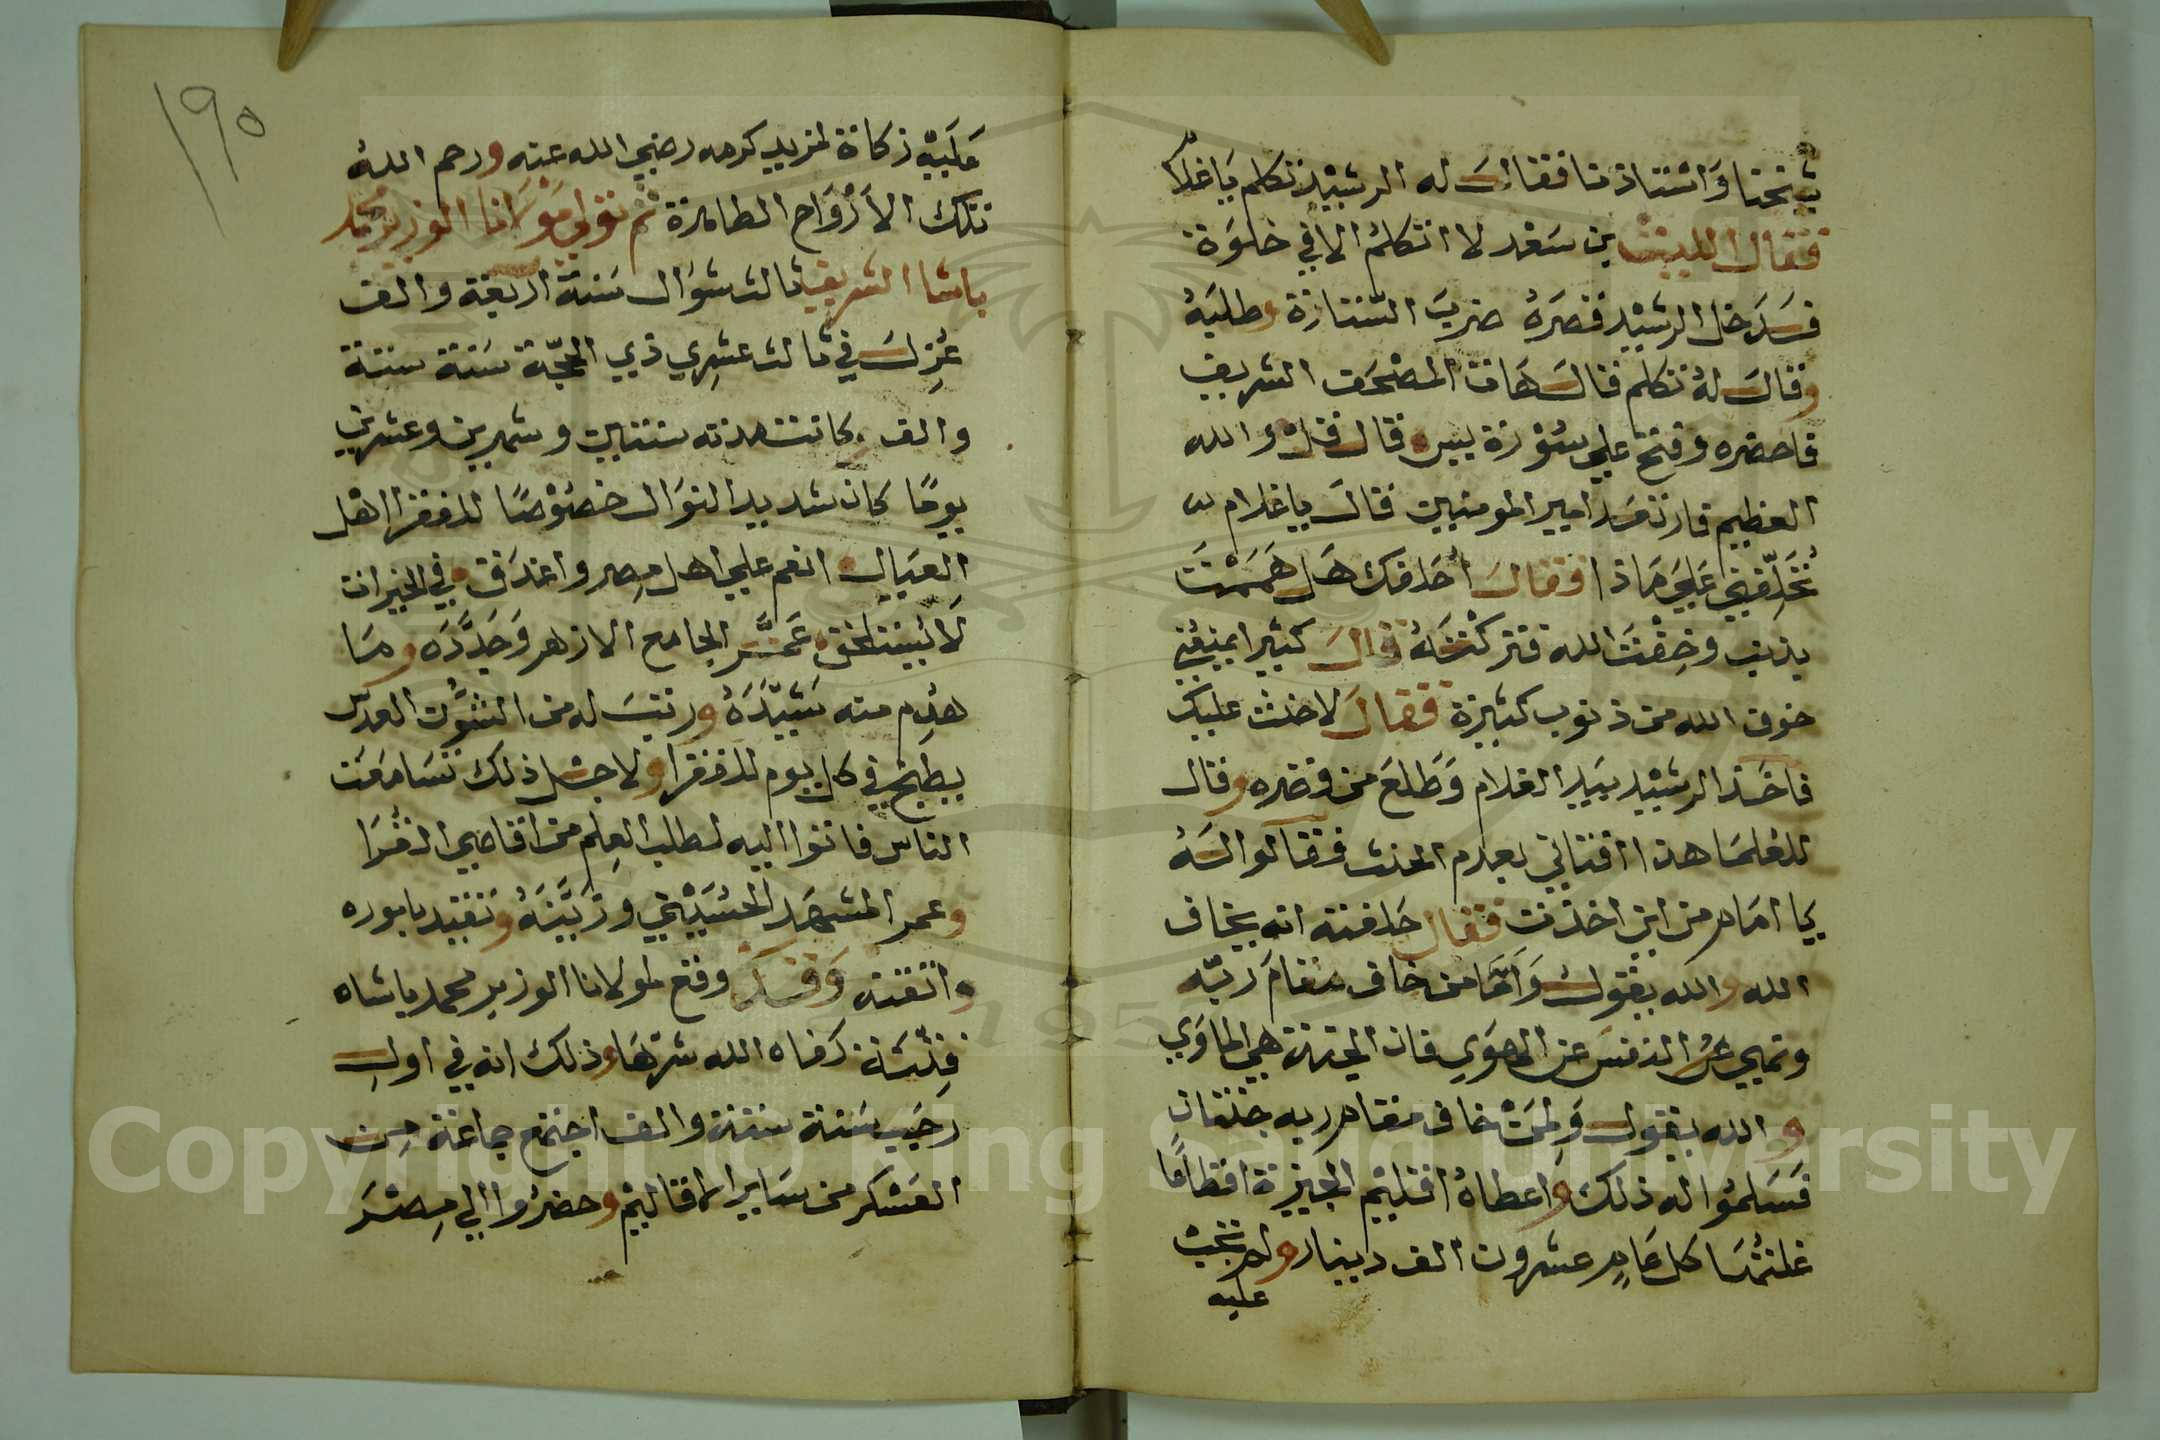 شيخنا واستاذنا فقال له الرشيد تكلم ياغلام
فقال الليث بن سعد لا اتكلم الا في خلوة
فدخل الرشيد قصره ضرب الستارة وطلبه
وقال له تكلم فقال هات المصحف الشريف
فاحضره وفتح علي سورة يس وقال قل والله
العظيم فارتعد امير المومنين فقال ياغلام
تحلفني علي ماذا فقال احلفك هل هممت
بذنب وخفت الله فتركته قال كثيرا يمنعني
خوف الله من ذنوب كثيرة فقال لا حنث عليك
فاخذ الرشيد بيد الغلام وطلع من قصره وقال
للعلما هذا افتاني بعدم الحنث فقالوا له
يا امام من اين اخذت فقال حلفته انه يخاف
الله والله يقول واما من خاف مقام ربه
ونهي النفس عن الهوي فان الجنة هي الماوي
والله يقول ولمن خاف مقام ربه جنتان
فسلموا له ذلك واعطاه اقليم الجيزة اقطاعا
غلتها كل عام عشرون الف دينار ولم تجب
عليه
١٩٥
عليه زكاة لمزيد كرمه رضي الله عنه ورحم الله
تلك الارواح الطاهرة ثم تولي مولانا الوزير محمد
باشا الشريف ثالث شوال سنة اربعة والف
عزل في ثالث عشري ذي الحجة سنة ستة
والف وكانت مدته سنتين وشهرين وعشرين
يوما كان شديد النوال خصوصا للفقرا اهل
العيال انعم علي اهل مصر واغدق في الخيرات
عمر الجامع الازهر وجدده وما
هدم منه شيده ورتب له من العدس
يطبخ في كل يوم للفقرا ولاجل ذلك تسامعت
الناس فاتوا اليه لطلب العلم من اقاصي القرا
وعمر المشهد الحسيني وزينه وتقيد باموره
واتقنه وقد وقع لمولانا الوزير محمد باشاه
فتنة كفاه الله شرها وذلك انه في اول
رجب سنة ستة والف اجتمع جماعة من
العسكر من ساير الاقاليم وحضروا الي مصر
Copyright © King Saud University
1957